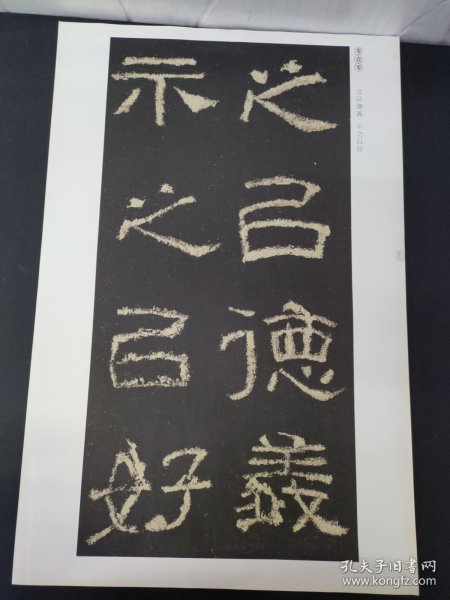 之㠯德義
示之㠯好
零壹零
之以德義 示之以好
孔夫子旧书网
www.kongfz.com